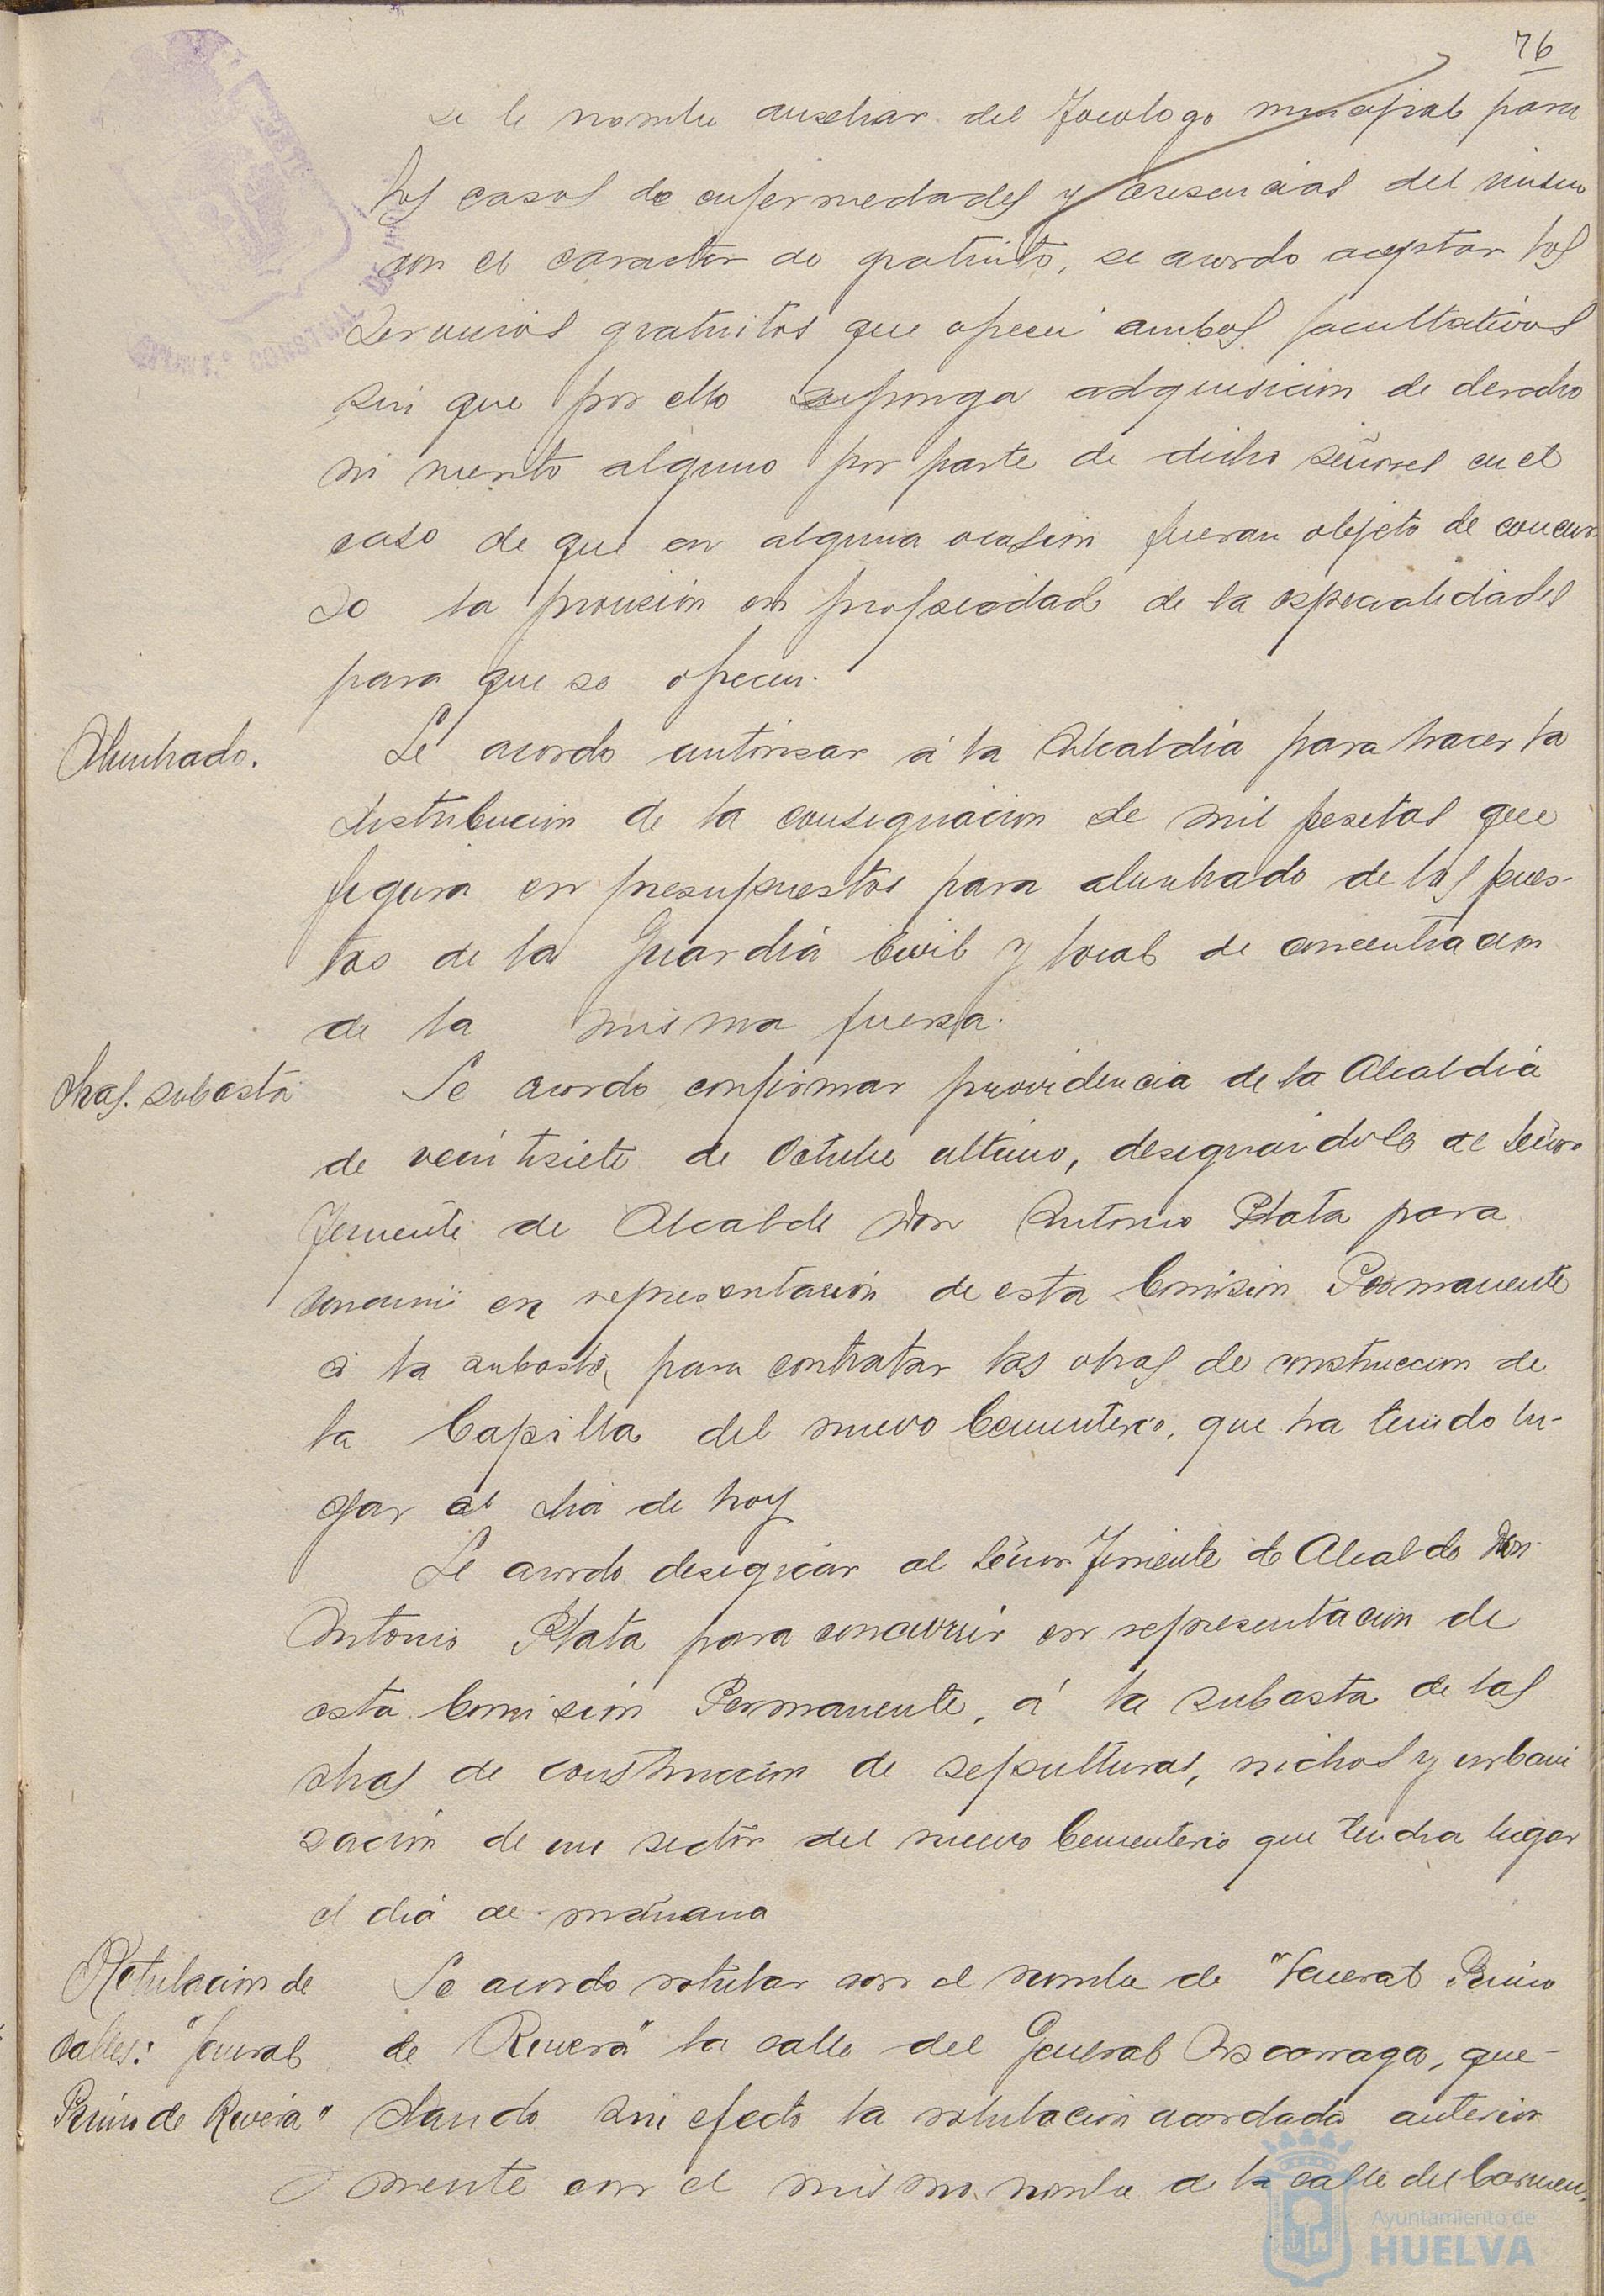 76
se le nombre auxiliar del Tocologo municipal para
los casos de enfermedades y ausencias del mismo
con el caracter de gratuito, se acordo aceptar los
servicios gratuitos que ofrecen ambos facultativos
sin que por ello suponga adquisicion de derecho
ni merito alguno por parte de dicho señores en el
caso de que en alguna ocasion fueran objeto de concur
so la provision en propiedad de la especialidades
para que se ofrecen.
Alumbrado.
Se acordo autorizar á la Alcaldia para hacer la
distribucion de la consignacion de mil pesetas que
figura en presupuestos para alumbrado de los pues-
tos de la Guardia Civil y local de concentracion
de la misma fuerza.
Obras. subasta
Se acordo confirmar providencia de la Alcaldia
de veintisiete de Octubre ultimo, designandole al señor
Teniente de Alcalde Don Antonio Plata para
concurrir en representacion de esta Comision Permanente
á la subasta para contratar las obras de construccion de
la Capilla del nuevo Cementerio, que ha tenido lu-
gar el dia de hoy
Se acordo designar al señor Teniente de Alcalde Don
Antonio Plata para concurrir en representacion de
esta Comision Permanente, á la subasta de las
obras de construccion de sepulturas, nichos y urbani
zacion de un sector del nuevo Cementerio que tendra lugar
el dia de mañana
Rotulacion de
calles: "General
Primo de Rivera"
Se acordo rotular con el nombre de "General Primo
de Rivera" la calle del General Azcarraga, que-
dando sin efecto la rotulacion acordada anterior
mente con el mismo nombre a la calle del Carmen.
Ayuntamiento de
HUELVA